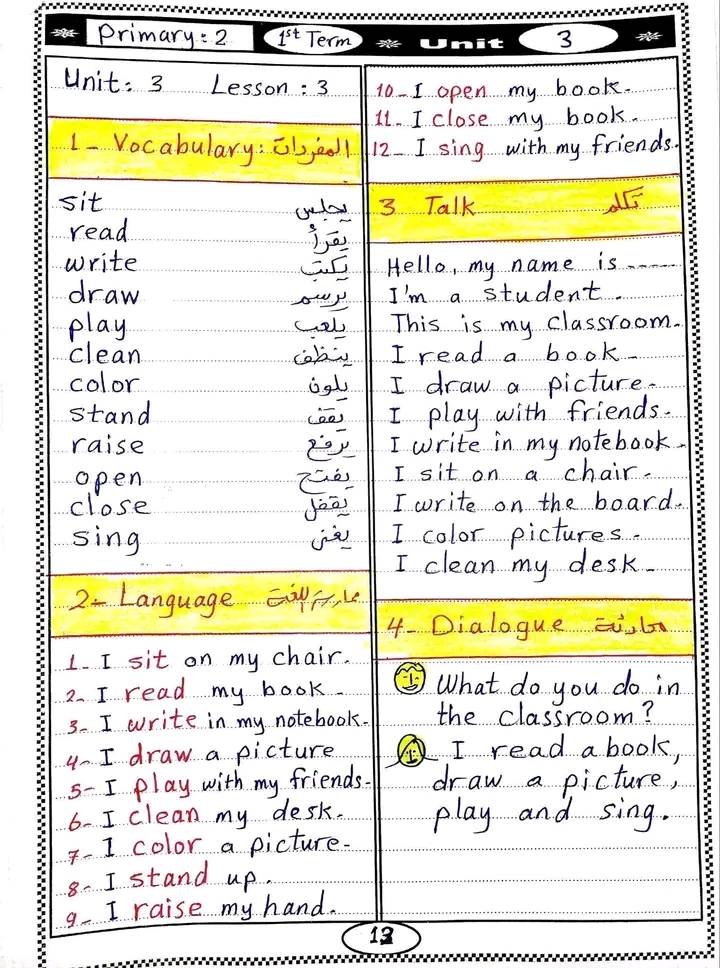 Primary: 2 1st Term Unit 3
Unit: 3 Lesson: 3
1- Vocabulary: المفردات
sit يجلس
read يقرأ
write يكتب
draw يرسم
play يلعب
clean ينظف
color يلون
stand يقف
raise يرفع
open يفتح
close يقفل
sing يغنى
2- Language ممارسة اللغة
1- I sit on my chair.
2- I read my book.
3- I write in my notebook.
4- I draw a picture
5- I play with my friends.
6- I clean my desk.
7- I color a picture.
8- I stand up.
9- I raise my hand.
10- I open my book.
11- I close my book.
12- I sing with my friends.
3 Talk تكلم
Hello, my name is -----
I'm a student.
This is my classroom.
I read a book.
I draw a picture.
I play with friends.
I write in my notebook.
I sit on a chair.
I write on the board.
I color pictures.
I clean my desk.
4- Dialogue محادثة
What do you do in
the classroom?
I read a book,
draw a picture,
play and sing.
13